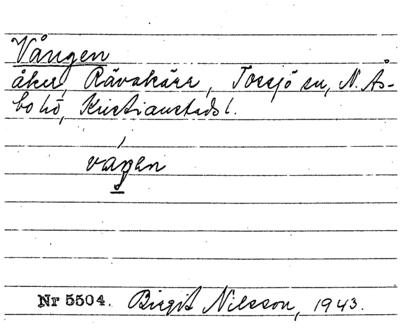 Vången
åker, Rävakärr, Tossjö sn, N. Ås-
bo hd, Kristianstads l.
vágen
Nr 5504. Birgit Nilsson, 1943.